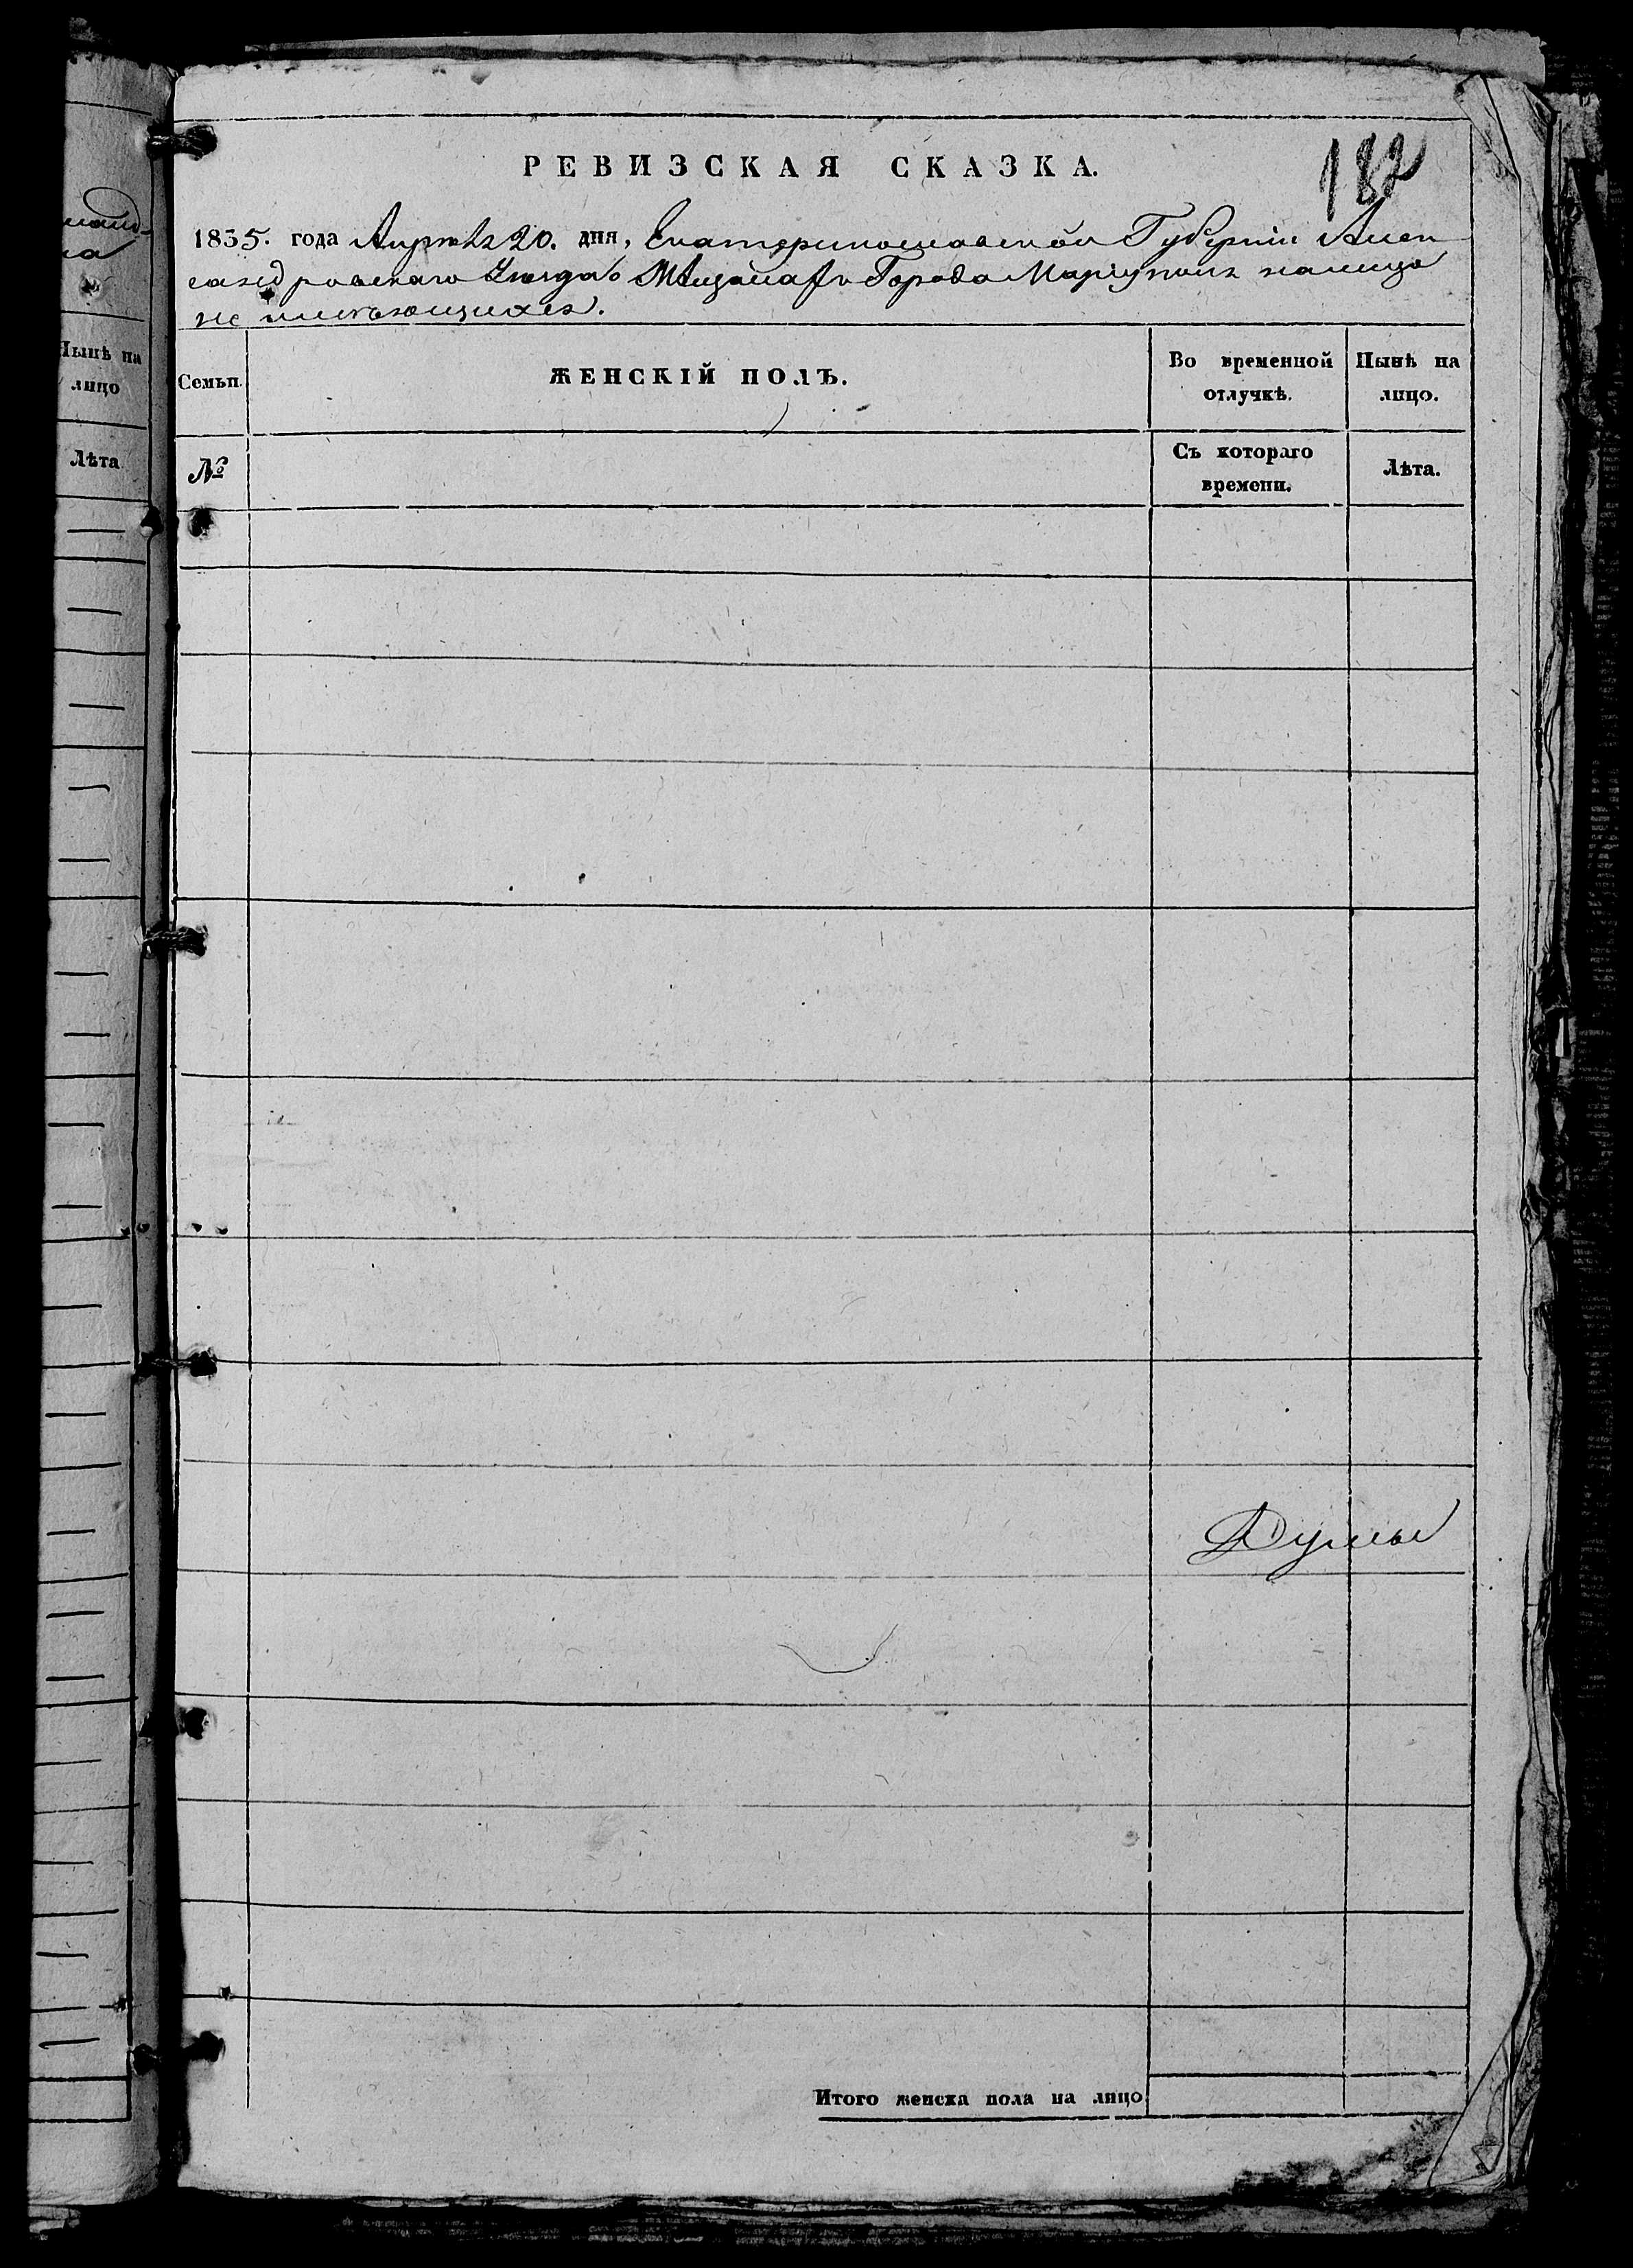 182
РЕВИЗСКАЯ СКАЗКА.
1835. года Апрѣля 20. дня, Екатеринославской Губерніи Алек
сандровскаго Уѣзда о Мѣщанахъ Города Маріуполя налицо
не имѣющихся.
Семьи.
ЖЕНСКІЙ ПОЛЪ.
Во временной
отлучкѣ.
Нынѣ на
лицо.
№
Съ котораго
времени.
Лѣта.
Думы
Итого женска пола на лицо
Нынѣ на
лицо
Лѣта